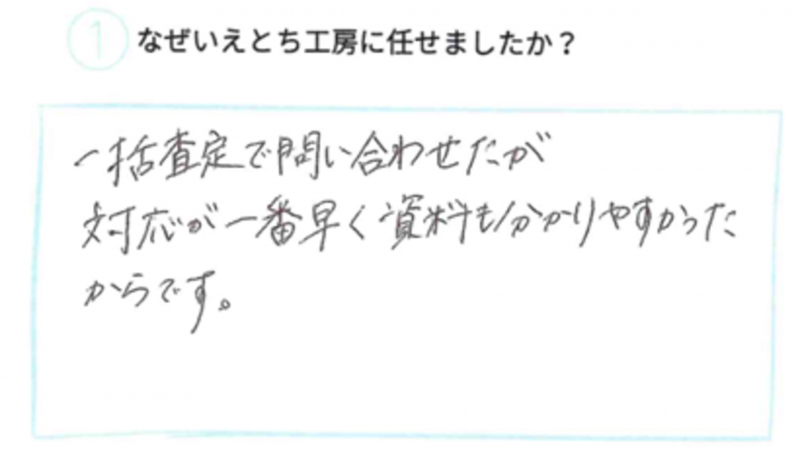 1 なぜいえとち工房に任せましたか？
一括査定で問い合わせたが
対応が一番早く資料も分かりやすかった
からです。